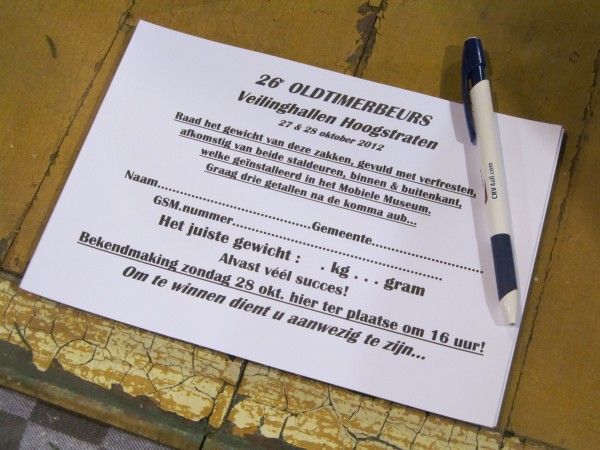 26e OLDTIMERBEURS
Veilinghallen Hoogstraten
27 & 28 oktober 2012
Raad het gewicht van deze zakken, gevuld met verfresten,
afkomstig van beide staldeuren, binnen & buitenkant,
welke geïnstalleerd in het Mobiele Museum.
Graag drie getallen na de komma aub...
Naam..........................................Gemeente..............................
GSM.nummer.......................................................
Het juiste gewicht : . kg . . . gram
Alvast véél succes!
Bekendmaking zondag 28 okt. hier ter plaatse om 16 uur!
Om te winnen dient u aanwezig te zijn...
CRV4all.com